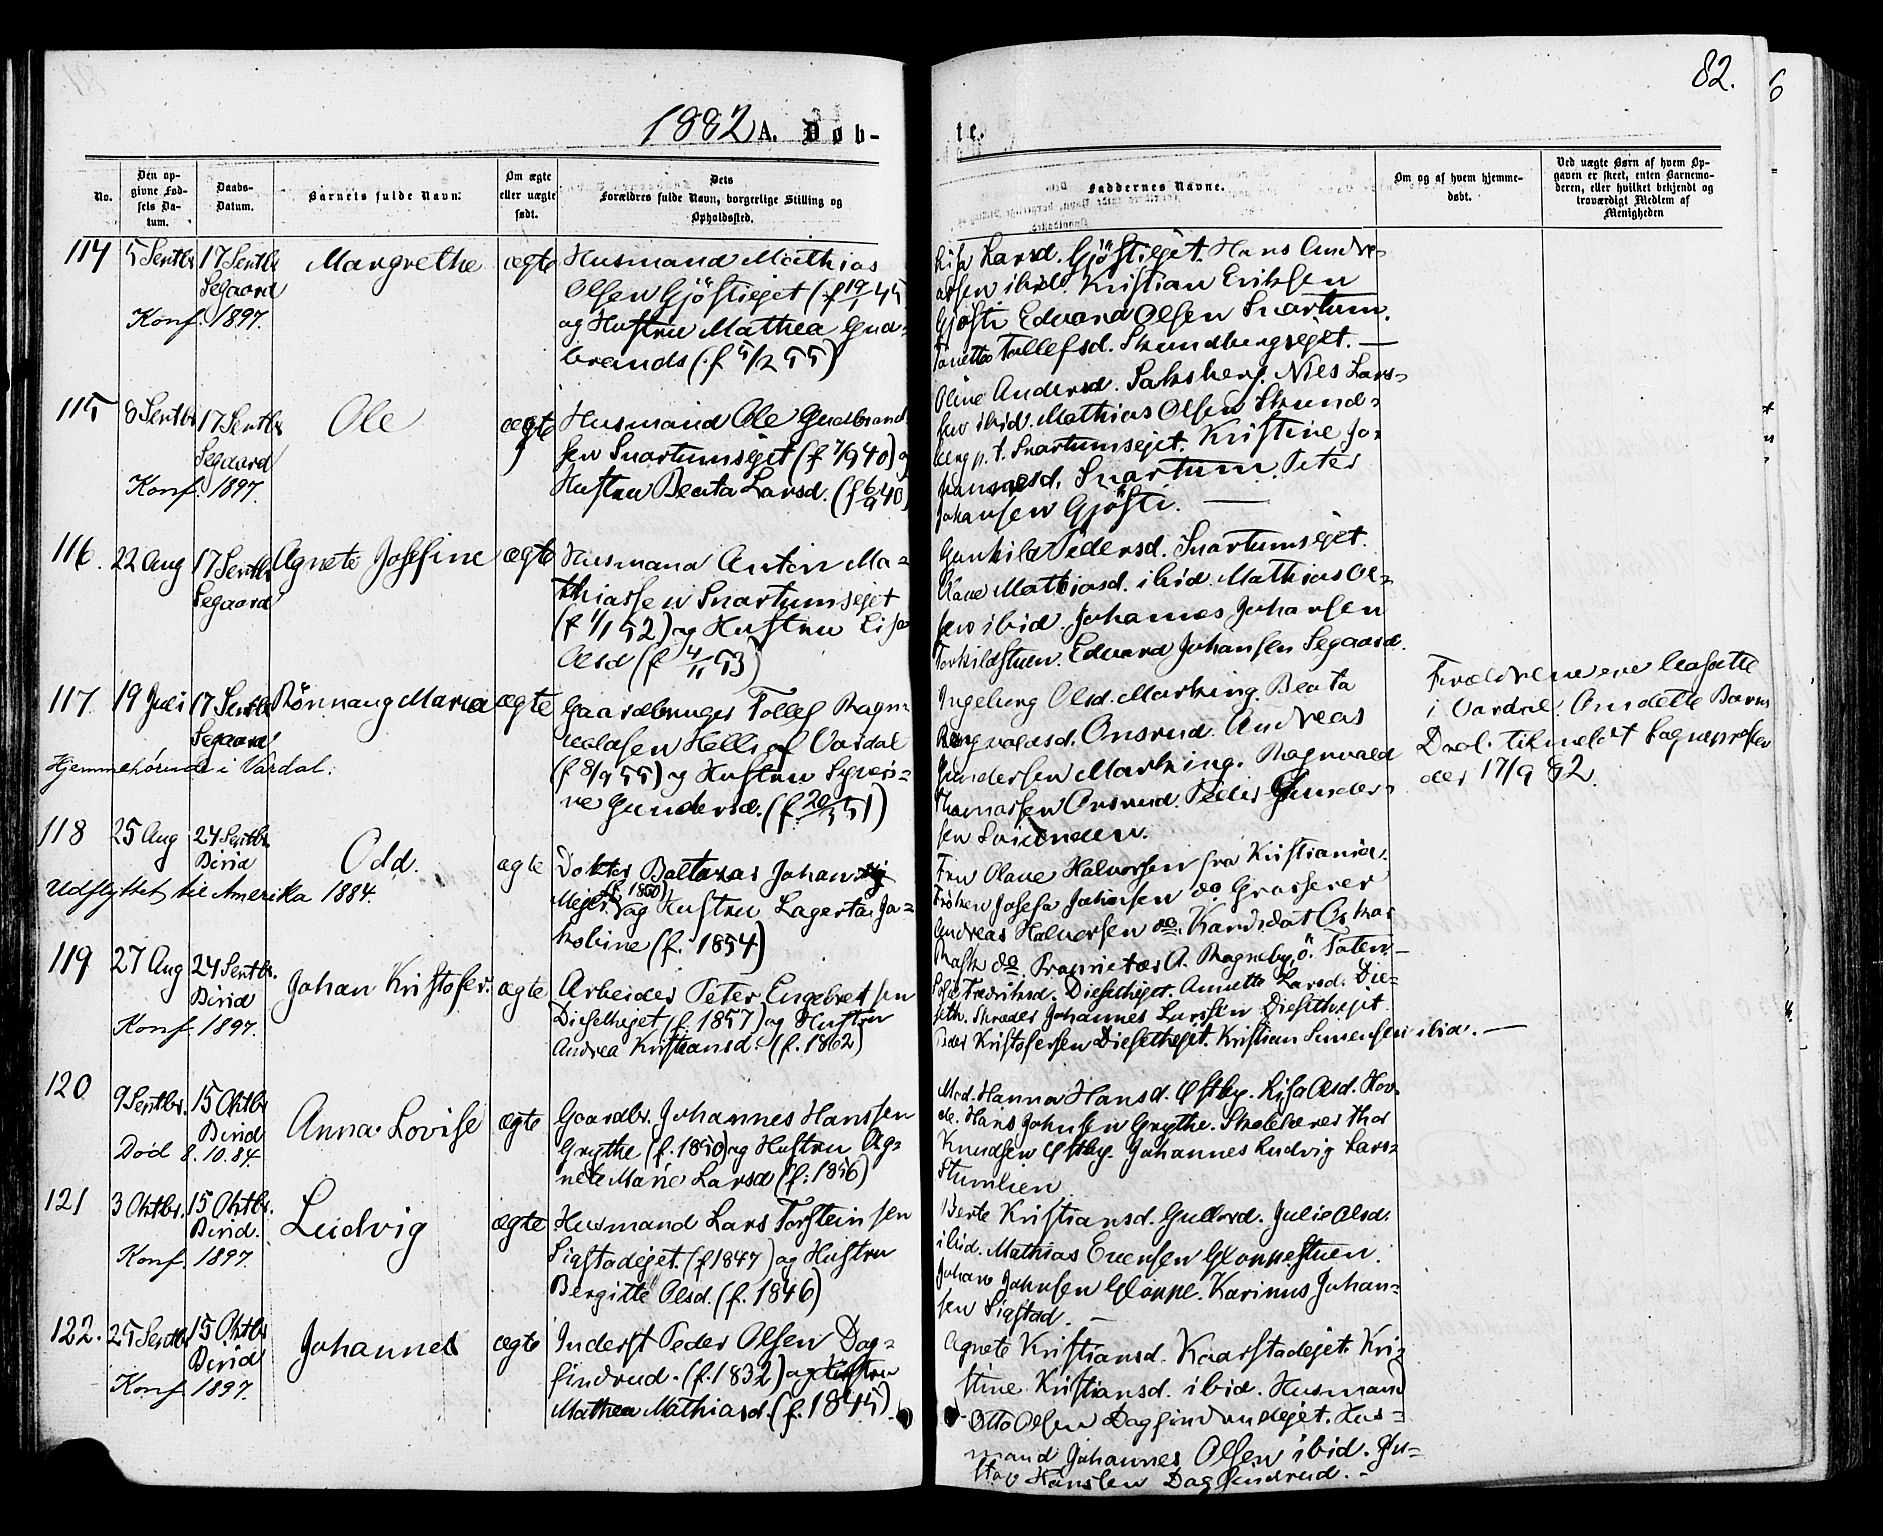 82.
6
1882 A. Døb-
te.
No.
Den op-
givne Fød-
sels Da-
tum.
Daabs-
Datum.
Barnets fulde Navn.
Om ægte
eller uægte
født.
Dets
Forældres fulde Navn, borgerlige Stilling og
Opholdssted.
Faddernes Navne.
Om og af hvem hjemme-
døbt.
Ved uægte Børn af hvem Op-
gaven er skeet, enten Barnemo-
deren, eller hvilket bekjendt og
troværdigt Medlem af
Menigheden
114
5 Septbr
17 Septbr
Segaard
Konf. 1897.
Margrethe
ægte
Husmand Mathias
Olsen Gjöstiejet (f 19/ 45
og Hustru Mathea Gud-
brands (f 5/2 55)
Lisa Larsd. Gjöstiejet. Hans Andre-
assen ibid. Kristian Eriksen
Gjösti Edvard Olsen Snartum.
Tollefsd. Skundbergsejet. —
115
8 Septbr
17 Septbr
Segaard
Konf. 1897.
Ole
ægte
Husmand Ole Gudbrand
sen Snartumsejet (f 7/9 40) og
Hustru Beata Larsd. (f 6/9 40)
Oline Andersd. Saksberg. Nils Lars-
sen ibid. Mathias Olsen Skund-
berg p. t. Snartumsejet. Kristine Jo-
hannesd. Snartum. Peter
Johansen Gjösti. —
116.
22 Aug
17 Septbr
Segaard
Agnete Josefine
ægte
Husmand Anton Ma-
thiassen Snartumsejet
(f 1/1 52) og Hustru Lisa
Olsd (f 4/11 53)
Gunhild Pedersd. Snartumsejet.
Olave Mathiasd. ibid. Mathias Ol-
sen ibid. Johannes Johansen
Torkildstuen. Edvard Johansen Segaard.
117.
19 Juli
17 Septbr
Segaard
Hjemmehörende i Vardal.
Rönnaug Maria
ægte
Gaardbruger Tollef Ragn-
valdsen Helle af Vardal
(f 8/9 55) og Hustru Syver-
ne Gundersd. (f. 20/3 51)
Ingeborg Olsd. Marking. Beata
Ragnvaldsd. Onsrud. Andreas
Gundersen Marking. Ragnvald
Thomassen Onsrud. Peder Gunder-
sen
Forældrene ere bosatte
i Vardal. Om dette Barns
Daab tilmeldt Sognepresten
der 17/9 82.
118
25 Aug
24 Septbr.
Birid
Udflyttet til Amerika 1884.
Odd.
ægte
Doktor Baltazar Johan
Mejer (f. 1850) og Hustru Lagerta Ja-
kobine (f. 1854)
Fru Olave Halvorsen fra Kristiania.
Fröken Josefa Johnsen do Grosserer
Andreas Halvorsen do. Kandidat Oskar
Rask do. Proprietær A. Ragneby, Ö. Toten. —
119
27 Aug
24 Septbr.
Birid
Konf. 1897.
Johan Kristofer.
ægte
Arbeider Peter Engebretsen
Diesethejet (f. 1857) og Hustru
Andrea Kristiansd. (f. 1862)
Sofie Fredriksd. Diesethejet. Annette Larsd. Die-
seth. Skræder Johannes Larssen Diesethejet.
Peder Kristofersen Diesethejet. Kristian Simensen ibid. —
120
9 Septbr.
15 Oktbr
Birid
Död 8.10.84.
Anna Lovise
ægte
Gaardbr. Johannes Hanssen
Grythe (f. 1850) og Hustru Ag-
nete Marie Larsd (f. 1856)
Mad. Hanna Hansd. Östby. Lisa Olsd. Hov-
de. Hans Johnsen Grythe. Skolelærer Thor
Knudsen Östby. Johannes Ludvig Lars-
Stumlien
121
3 Oktbr.
15 Oktbr.
Birid.
Konf. 1897.
Ludvig
ægte
Husmand Lars Torsteinsen
Sigstadejet. (f 1847) og Hustru
Bergitte Olsd. (f. 1846)
Berte Kristiansd. Gullord. Julie Olsd.
ibid. Mathias Evensen Gloppestuen.
Johan Johnsen Gloppe. Karinus Johan-
sen Sigstad. —
122.
25 Septbr
15 Oktbr
Birid
Konf. 1897.
Johannes
ægte
Inderst Peder Olsen Dag-
findrud. (f. 1832) og Hustru
Mathea Mathiasd. (f. 1845).
Agnete Kristiansd. Kaarstadejet. Kri-
stine Kristiansd. ibid. Husmand
Otto Olsen Dagfindrudejet. Hus-
mand Johannes Olsen ibid. Gu-
stav Hanssen Dagfindrud. —